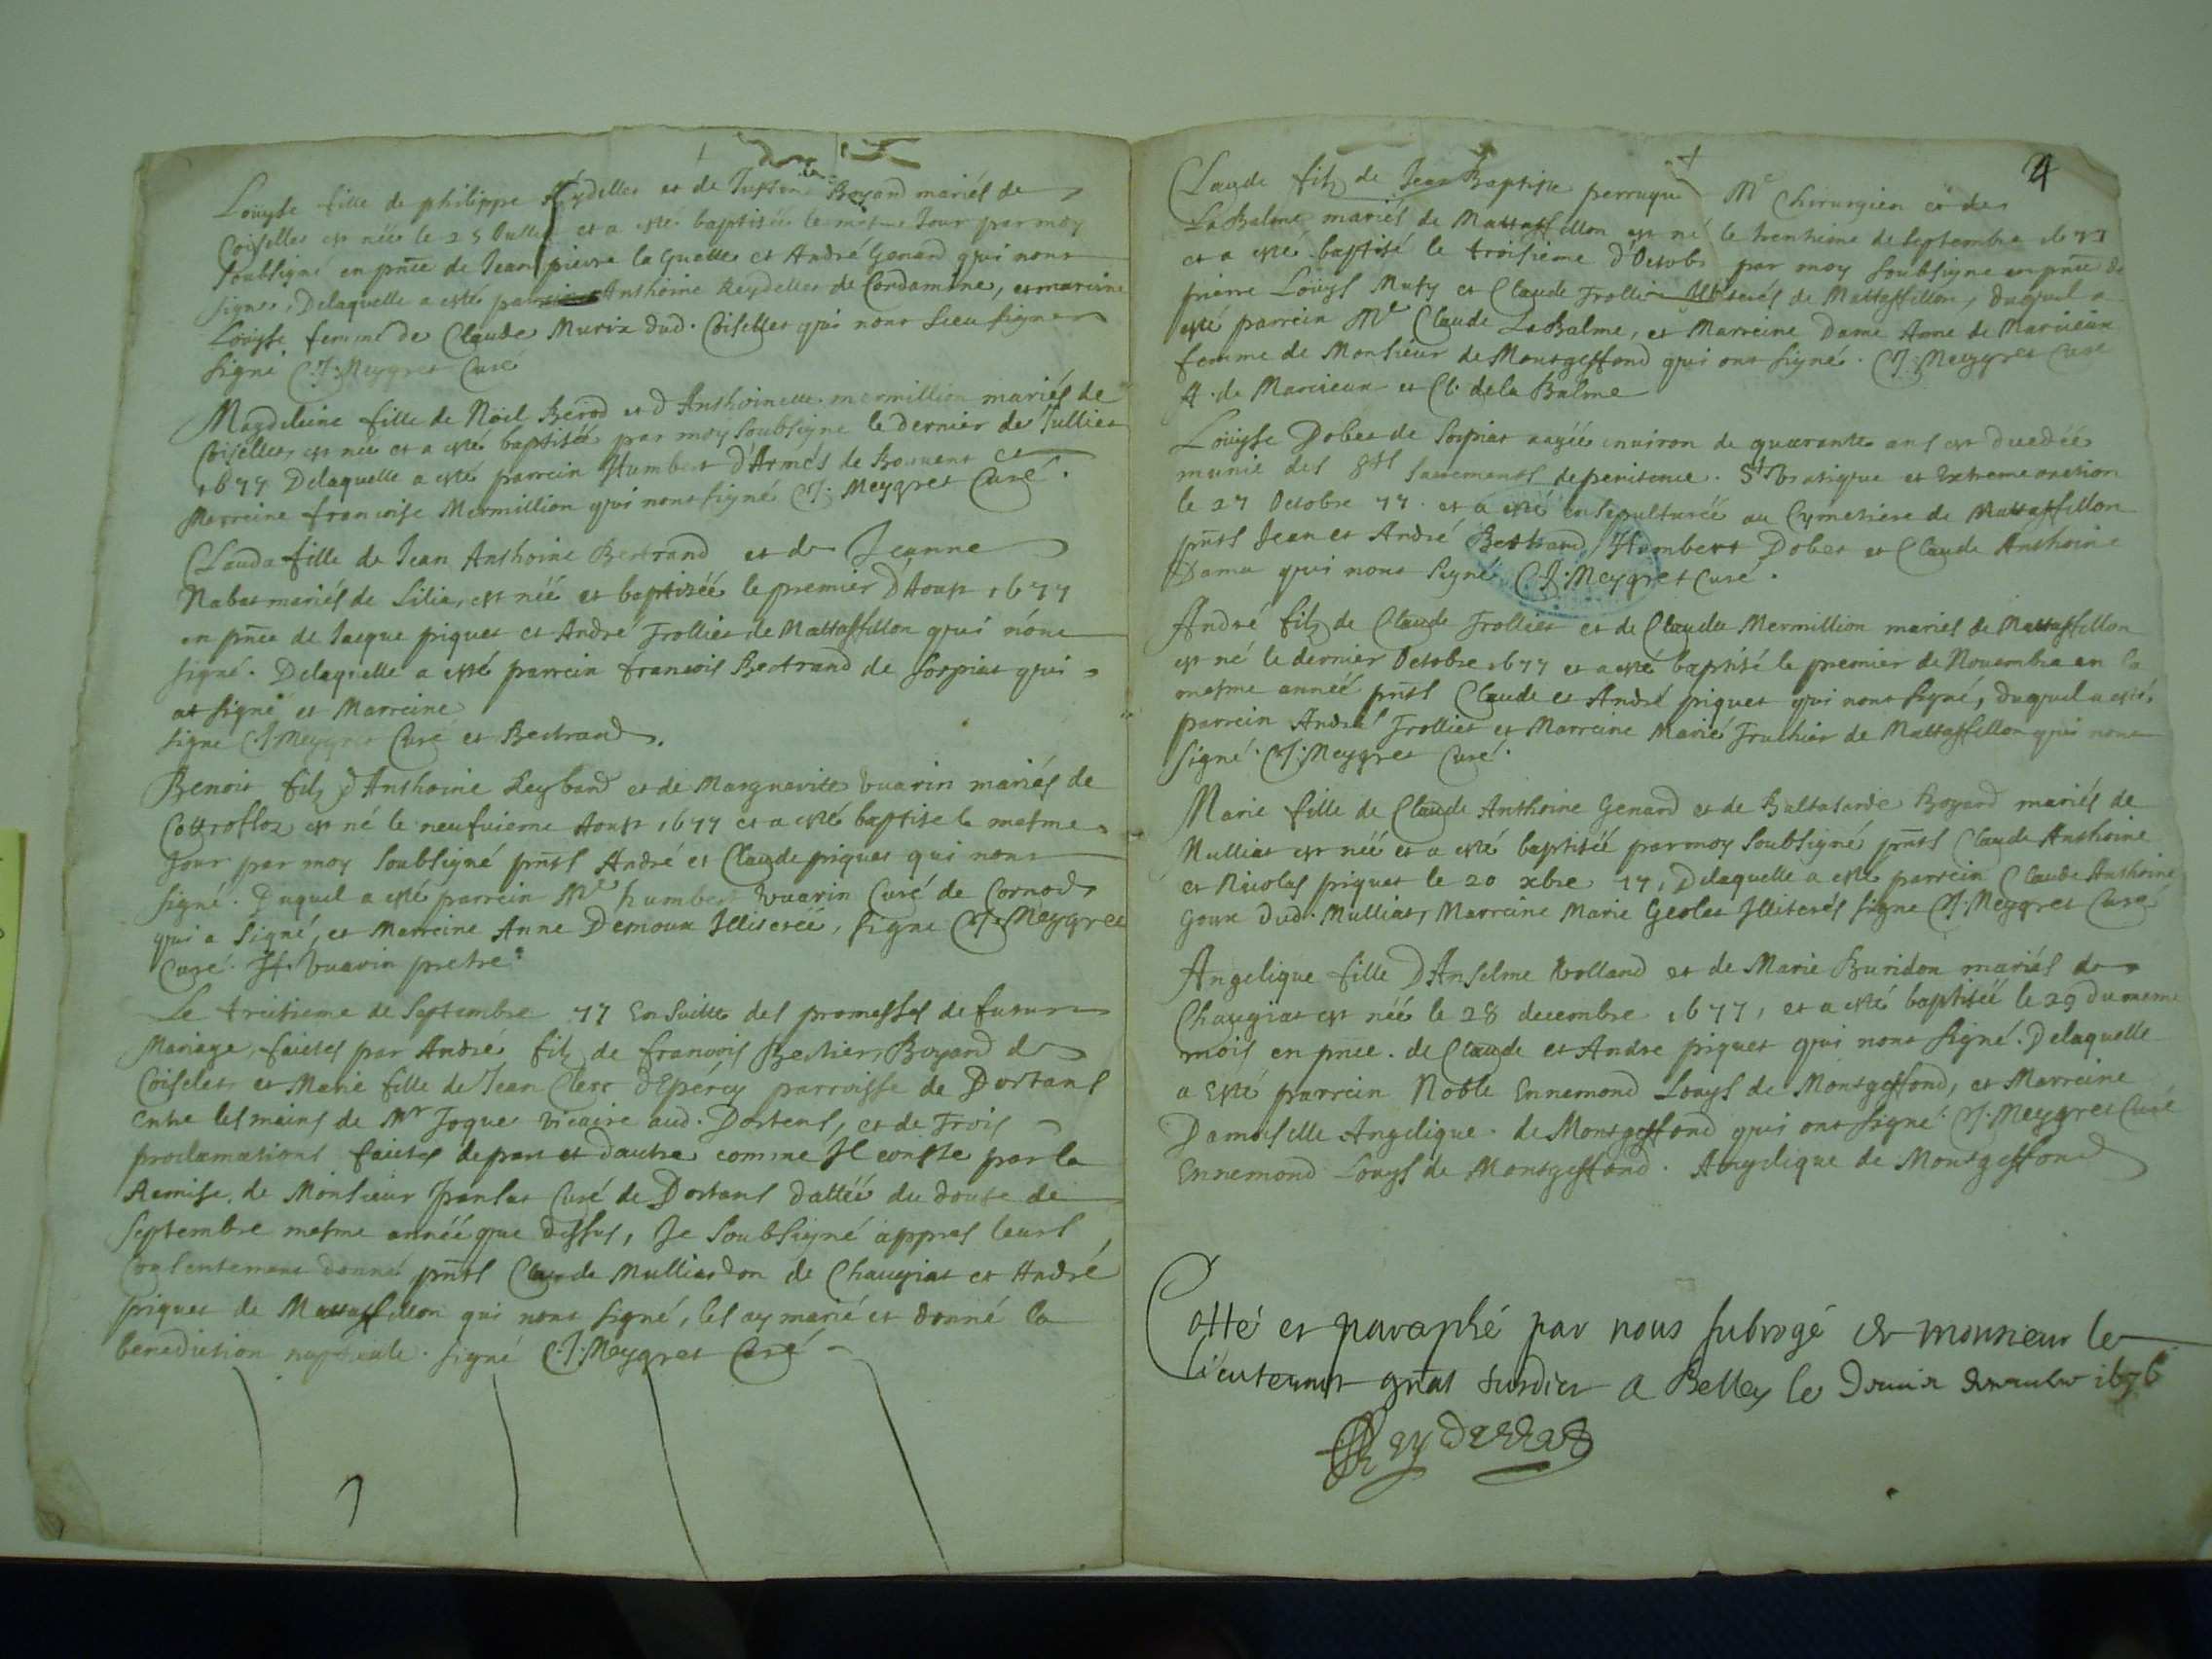 Loüyse fille de philippe Reydellet et de Boyard mariés de
Coiselles est née le 25 Jullet et a esté baptisée le mesme Jour par moy
soubsigné en pnce de Jean pierre la Guette et André Genard qui nont
signé, Delaquelle a esté Anthoine Reydellet de Condamine, et marreine
Loüyse femme de Claude Murix dud. Coiselles qui nont sceu signer
signé C.J. Meygret Curé
Magdeleine fille de Nöel Bérod et d'Anthoinette mermillion mariés de
Coiselles, est née et a esté baptisée par moy soubsigné le dernier de Julliet
1677 Delaquelle a esté parrein Humbert d'Armés de Bouuent et
Marreine francoise Mermillion qui nont signé C.J. Meygret Curé.
Clauda fille de Jean Anthoine Bertrand et de Jeanne
Nabat mariés de Siliat, est née et baptizée le premier d'Aoust 1677
en pnce de Jacque piquet et André Trolliet de Mattaffellon qui nont
signé. Delaquelle a esté parrein francois Bertrand de Sorpiat qui
at signé et Marreine
signé C.J. Meygret Curé et Bertrand.
Benoit filz d'Anthoine Reyband et de Marguerite Vuarin mariés de
est né le neufuieme Aoust 1677 et a esté baptisé le mesme
Jour par moy soubsigné pnts André et Claude piquet qui nont
signé. Duquel a esté parrein Mre humbert Vuarin Curé de Cornod
qui a signé, et Marreine Anne Demoux Illiterée, signé C.J. Meygret
Curé. H. Vuarin pretre.
Le treisieme de Septembre 77 En suitte des promesses de futur
Mariage, faictes par Andre filz de francois Boyard de
Coiselet et Marie fille de Jean Clerc d'Epércy parroisse de Dortans
entre les mains de Mr Joquet vicaire aud. Dortens, et de Trois
proclamations faictes de part et d'autre comme Il conste par la
Remise de Monsieur Curé de Dortans dattée du douze de
Septembre mesme année que dessus, Je soubsigné appres leurs
Consentement donné pnts Claude Mulliardon de Chaugiat et André
piquet de Mattaffellon qui nont signé, les ay marié et donné la
benediction nuptiale. signé C.J. Meygret Curé
4
Claude filz de Jean Baptiste perruque Me Chirurgien et de
La Balme mariés de Mattaffellon est né le trentieme de Septembre 1677
et a esté baptisé le troisieme d'Octobre par moy soubsigné en pnce de
pierre Loüys Muty et Claude Trolliet Illiterés de Mattaffellon, duquel a
esté parrein Me Claude La Balme, et Marreine Dame Anne de Marcieux
femme de Monsieur de Montgeffond qui ont signé. C.J. Meygret Curé
A. de Marcieux et Cl. de la Balme
Loüyse Dobet de Sorpiat aagée enuiron de quarante ans est decedée
munie des Sts Sacrements de penitence. St Viatique et Extreme onction
le 27 Octobre 77. et a esté ensepulturée au Cymetiere de Mattaffellon
pnts Jean et André Bertrand, Humbert Dobet et Claude Anthoine
Dama qui nont signé C.J. Meygret Curé.
André filz de Claude Trolliet et de Clauda Mermillion mariés de Mattaffellon
est né le dernier Octobre 1677 et a esté baptisé le premier de Nouembre en la
mesme année pnts Claude et André piquet qui nont signé, duquel a esté
parrein André Trolliet et Marreine Marie Truchier de Mattaffellon qui nont
signé. C.J. Meygret Curé.
Marie fille de Claude Anthoine Genard et de Baltasarde Boyard mariés de
Mulliat est née et a esté baptisée par moy soubsigné pnts Claude Anthoine
et Nicolas piquet le 20 xbre 77, Delaquelle a esté parrein Claude Anthoine
Goux dud. Mulliat, Marreine Marie Geolet Illiterés signé C.J. Meygret Curé
Angelique fille D'Anselme Volland et de Marie Buridon mariés de
Chaugiat est née le 28 decembre 1677, et a esté baptisée le 29 du mesme
mois en pnce. de Claude et Andre piquet qui nont signé. Delaquelle
a Esté parrein Noble Ennemond Louys de Montgeffond, et Marreine
Damoiselle Angelique de Montgeffond qui ont signé. C.J. Meygret Curé
Ennemond Louys de Montgeffond. Angelique de Montgeffond
Cotté et paraphé par nous subrogé de monsieur le
lieutenant gnal susdict a Belley le dernier decembre 1676
Reydellet